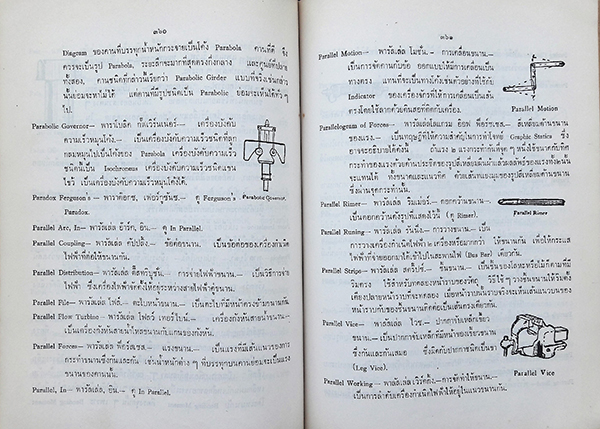 ๓๖๐
Diagram ของคานที่บรรทุกน้ำหนักกระจายเป็นโค้ง Parabola คานที่ดี จึง
ควรจะเป็นรูป Parabola, ระยะลึกจะมากที่สุดตรงกึ่งกลาง และศูนย์ที่ปลาย
ทั้งสอง, คานชนิดที่กล่าวนี้เรียกว่า Parabolic Girder แบบที่จริงเช่นกล่าว
นั้นย่อมจะหาไม่ได้ แต่คานที่มีรูปชนิดเป็น Parabolic ย่อมจะเห็นได้ทั่ว ๆ
ไป.
Parabolic Governor.— พาราโบลิค กัฟเวิร์นเน่อร์.— เครื่องบังคับ
ความเร็วหมุนโค้ง.— เป็นเครื่องบังคับความเร็วชนิดที่ลูก
กลมหมุนไปเป็นโค้งของ Parabola เครื่องบังคับความเร็ว
ชนิดนี้เป็น Isochronous เครื่องบังคับความเร็วชนิดแขน
ไขว้ เป็นเครื่องบังคับความเร็วหมุนโค้งได้.
Parabolic Governor.
Paradox Ferguson's— พาราดอกซ์, เฟอร์กุซันซ์.— ดู Ferguson's
Paradox.
Parallel Arc, In— พาราลเลล อาร์ก, อิน.— ดู In Parallel.
Parallel Coupling— พารัลเลล คัปปลิ่ง.— ข้อต่อขนาน. เป็นข้อต่อของเครื่องกำเนิด
ไฟฟ้าที่ต่อให้ขนานกัน.
Parallel Distribution— พารัลเลล ดิสทริบูชั่น.— การจ่ายไฟฟ้าขนาน.— เป็นวิธีการจ่าย
ไฟฟ้า ซึ่งเครื่องไฟฟ้าต่อคั่งให้อยู่ระหว่างสายไฟฟ้าคู่ขนาน.
Parallel File— พารัลเลล ไฟล์.— ตะไบหน้าขนาน.— เป็นตะไบที่มีหน้าตรงข้ามขนานกัน
Parallel Flow Turbine— พารัลเลล โฟลว์ เทอร์ไบน์.— เครื่องกังหันสายน้ำขนาน—
เป็นเครื่องกังหันสายน้ำไหลขนานกับแกนของกังหัน.
Parallel Forces— พารัลเลล ฟอร์ซเซส.— แรงขนาน.— เป็นแรงที่มีเส้นแนวของการ
กระทำขนานซึ่งกันและกัน เช่นน้ำหนักต่าง ๆ ที่บรรทุกบนคานย่อมจะเป็นแรง
ขนานของคานนั้น.
Parallel, In— พารัลเลล, อิน.— ดู In Parallel.
๓๖๑
Parallel Motion— พารัลเลล โมชั่น.— การเคลื่อนขนาน.—
เป็นการจัดคานกับข้อ ออกแบบให้มีการเคลื่อนเป็น
ทางตรง, แทนที่จะเป็นทางโค้งเช่นตัวอย่างที่ใช้กับ
Indicator ของเครื่องจักรที่ให้การเคลื่อนเป็นเส้น
ตรงโดยใช้ลากด้วยดินสอที่ติดกับเครื่อง.
Parallel Motion
Parallelogram of Forces.— พารัลเลโลแกรม อ๊อฟ ฟอร์ซเซส.— สี่เหลี่ยมด้านขนาน
ของแรง.— เป็นทฤษฎีที่ให้ความสำคัญในการทำโจทย์ Graphic Statics ซึ่ง
อาจจะอธิบายได้ดังนี้ ถ้าแรง ๒ แรงกระทำกันที่จุด ๆ หนึ่งใช้ขนาดกับทิศ
กระทำของแรงด้วยด้านประชิดของรูปสี่เหลี่ยมแล้ว ผลลัพธ์ของแรงทั้งนั้น
จะแทนได้ ทั้งขนาดและแนวทิศ ด้วยเส้นทแยงมุมของรูปสี่เหลี่ยมด้านขนาน
ซึ่งผ่านจุดกระทำนั้น.
Parallel Rimer— พารัลเลล ริมเม่อร์.— ดอกคว้านขนาน.—
เป็นดอกคว้านดังรูปที่แสดงไว้นี้ (ดู Rimer).
Parallel Rimer
Parallel Runing— พารัลเลล รันนิ่ง.— การวางขนาน.— เป็น
การวางเครื่องกำเนิดไฟฟ้า ๒ เครื่องหรือมากกว่า ให้ขนานกัน เพื่อให้กระแส
ไฟฟ้าที่จ่ายออกมาได้เข้าไปในสะพานไฟ (Bus Bar) เดียวกัน.
Parallel Strips— พารัลเลล สตริปซ์.— ชิ้นขนาน.— เป็นชิ้นของโลหะหรือไม้ก็ตามที่มี
ริมตรง ใช้สำหรับทดลองหน้าราบของวัตถุ วิธีใช้ ๆ วางชิ้นขนานให้ริมตั้ง
เคียงปลายหน้าราบที่จะทดลอง เมื่อหน้าราบนั้นราบจริงจะเห็นเส้นแนวบนของ
หน้าราบกับของชิ้นขนานติดต่อเป็นเส้นตรงเดียวกัน.
Parallel Vice— พาลัลเลล ไวซ.— ปากกาจับเหล็กเขี้ยว
ขนาน.— เป็นปากกาจับเหล็กที่มีหน้าของเขี้ยวขนาน
ซึ่งกันและกันเสมอ ซึ่งผิดกับปากกาชนิดเป็นขา
(Leg Vice).
Parallel Vice
Parallel Working— พาลัลเลล เวิร์คกิ้ง.— การจัดทำให้ขนาน.—
เป็นการลำดับเครื่องกำเนิดไฟฟ้าให้อยู่ในแนวขนานกัน.